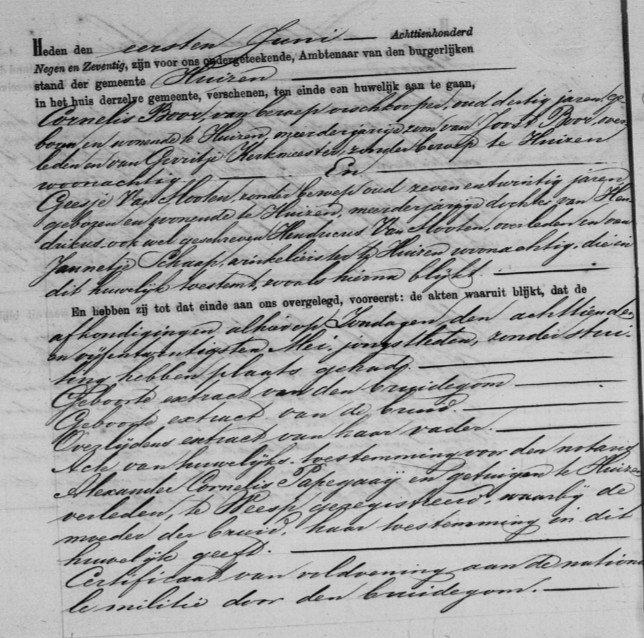 Heden den eersten Juni Achttienhonderd
Negen en Zeventig, zijn voor ons ondergeteekende, Ambtenaar van den burgerlijken
stand der gemeente Huizen
in het huis derzelve gemeente, verschenen, ten einde een huwelijk aan te gaan,
Cornelis Boor, van beroep oud dertig jaren, ge-
boren en wonende te Huizen, meerderjarige zoon van Joost Boor, over
leden en van Gerritje zonder beroep te Huizen
woonachtig. En
Geesje Van Slooten, zonder beroep oud zevenentwintig jaren
geboren en wonende te Huizen, meerderjarige dochter van Hen
dricus, ook wel geschreven Hendricus Van Slooten, overleden en van
Jannetje Schaap, winkelierster te Huizen woonachtig, die in
dit huwelijk toestemt, zoals hierna blijkt.
En hebben zij tot dat einde aan ons overgelegd, vooreerst: de akten waaruit blijkt, dat de
afkondigingen alhier op Zondagen, den achttienden
en vijfentwintigsten Mei, jongstleden, zonder stui-
ting hebben plaats gehad.
Geboorte extract van den bruidegom
Geboorte extract van de bruid.
Overlijdens extract van haar vader.
Acte van huwelijks toestemming voor den notaris
Alexander Cornelis Papegaaij en getuigen te Huizen
verleden, te Weesp geregistreerd, waarbij de
moeder der bruid, haar toestemming in dit
huwelijk geeft.
Certificaat van voldoening aan de nationa
le militie door den bruidegom.